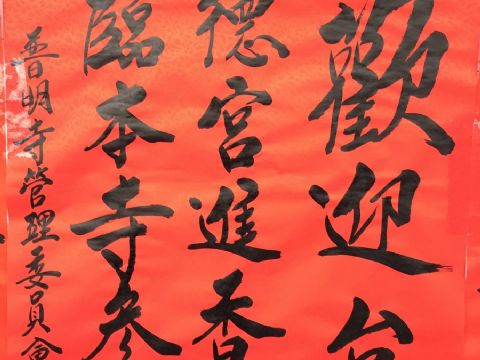 歡迎台
德宮進香
臨本寺參
普明寺管理委員會